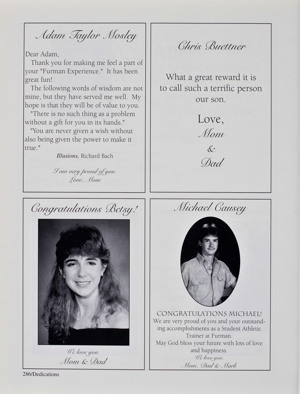 Adam Taylor Mosley
Dear Adam,
Thank you for making me feel a part of
your "Furman Experience." It has been
great fun!
The following words of wisdom are not
mine, but they have served me well. My
hope is that they will be of value to you.
"There is no such thing as a problem
without a gift for you in its hands."
"You are never given a wish without
also being given the power to make it
true."
Illusions, Richard Bach
I am very proud of you.
Love, Mom
Chris Buettner
What a great reward it is
to call such a terrific person
our son.
Love,
Mom
&
Dad
Congratulations Betsy!
We love you
Mom & Dad
Michael Causey
CONGRATULATIONS MICHAEL!
We are very proud of you and your outstand-
ing accomplishments as a Student Athletic
Trainer at Furman.
May God bless your future with lots of love
and happiness.
We love you
Mom, Dad & Mark
286/Dedications